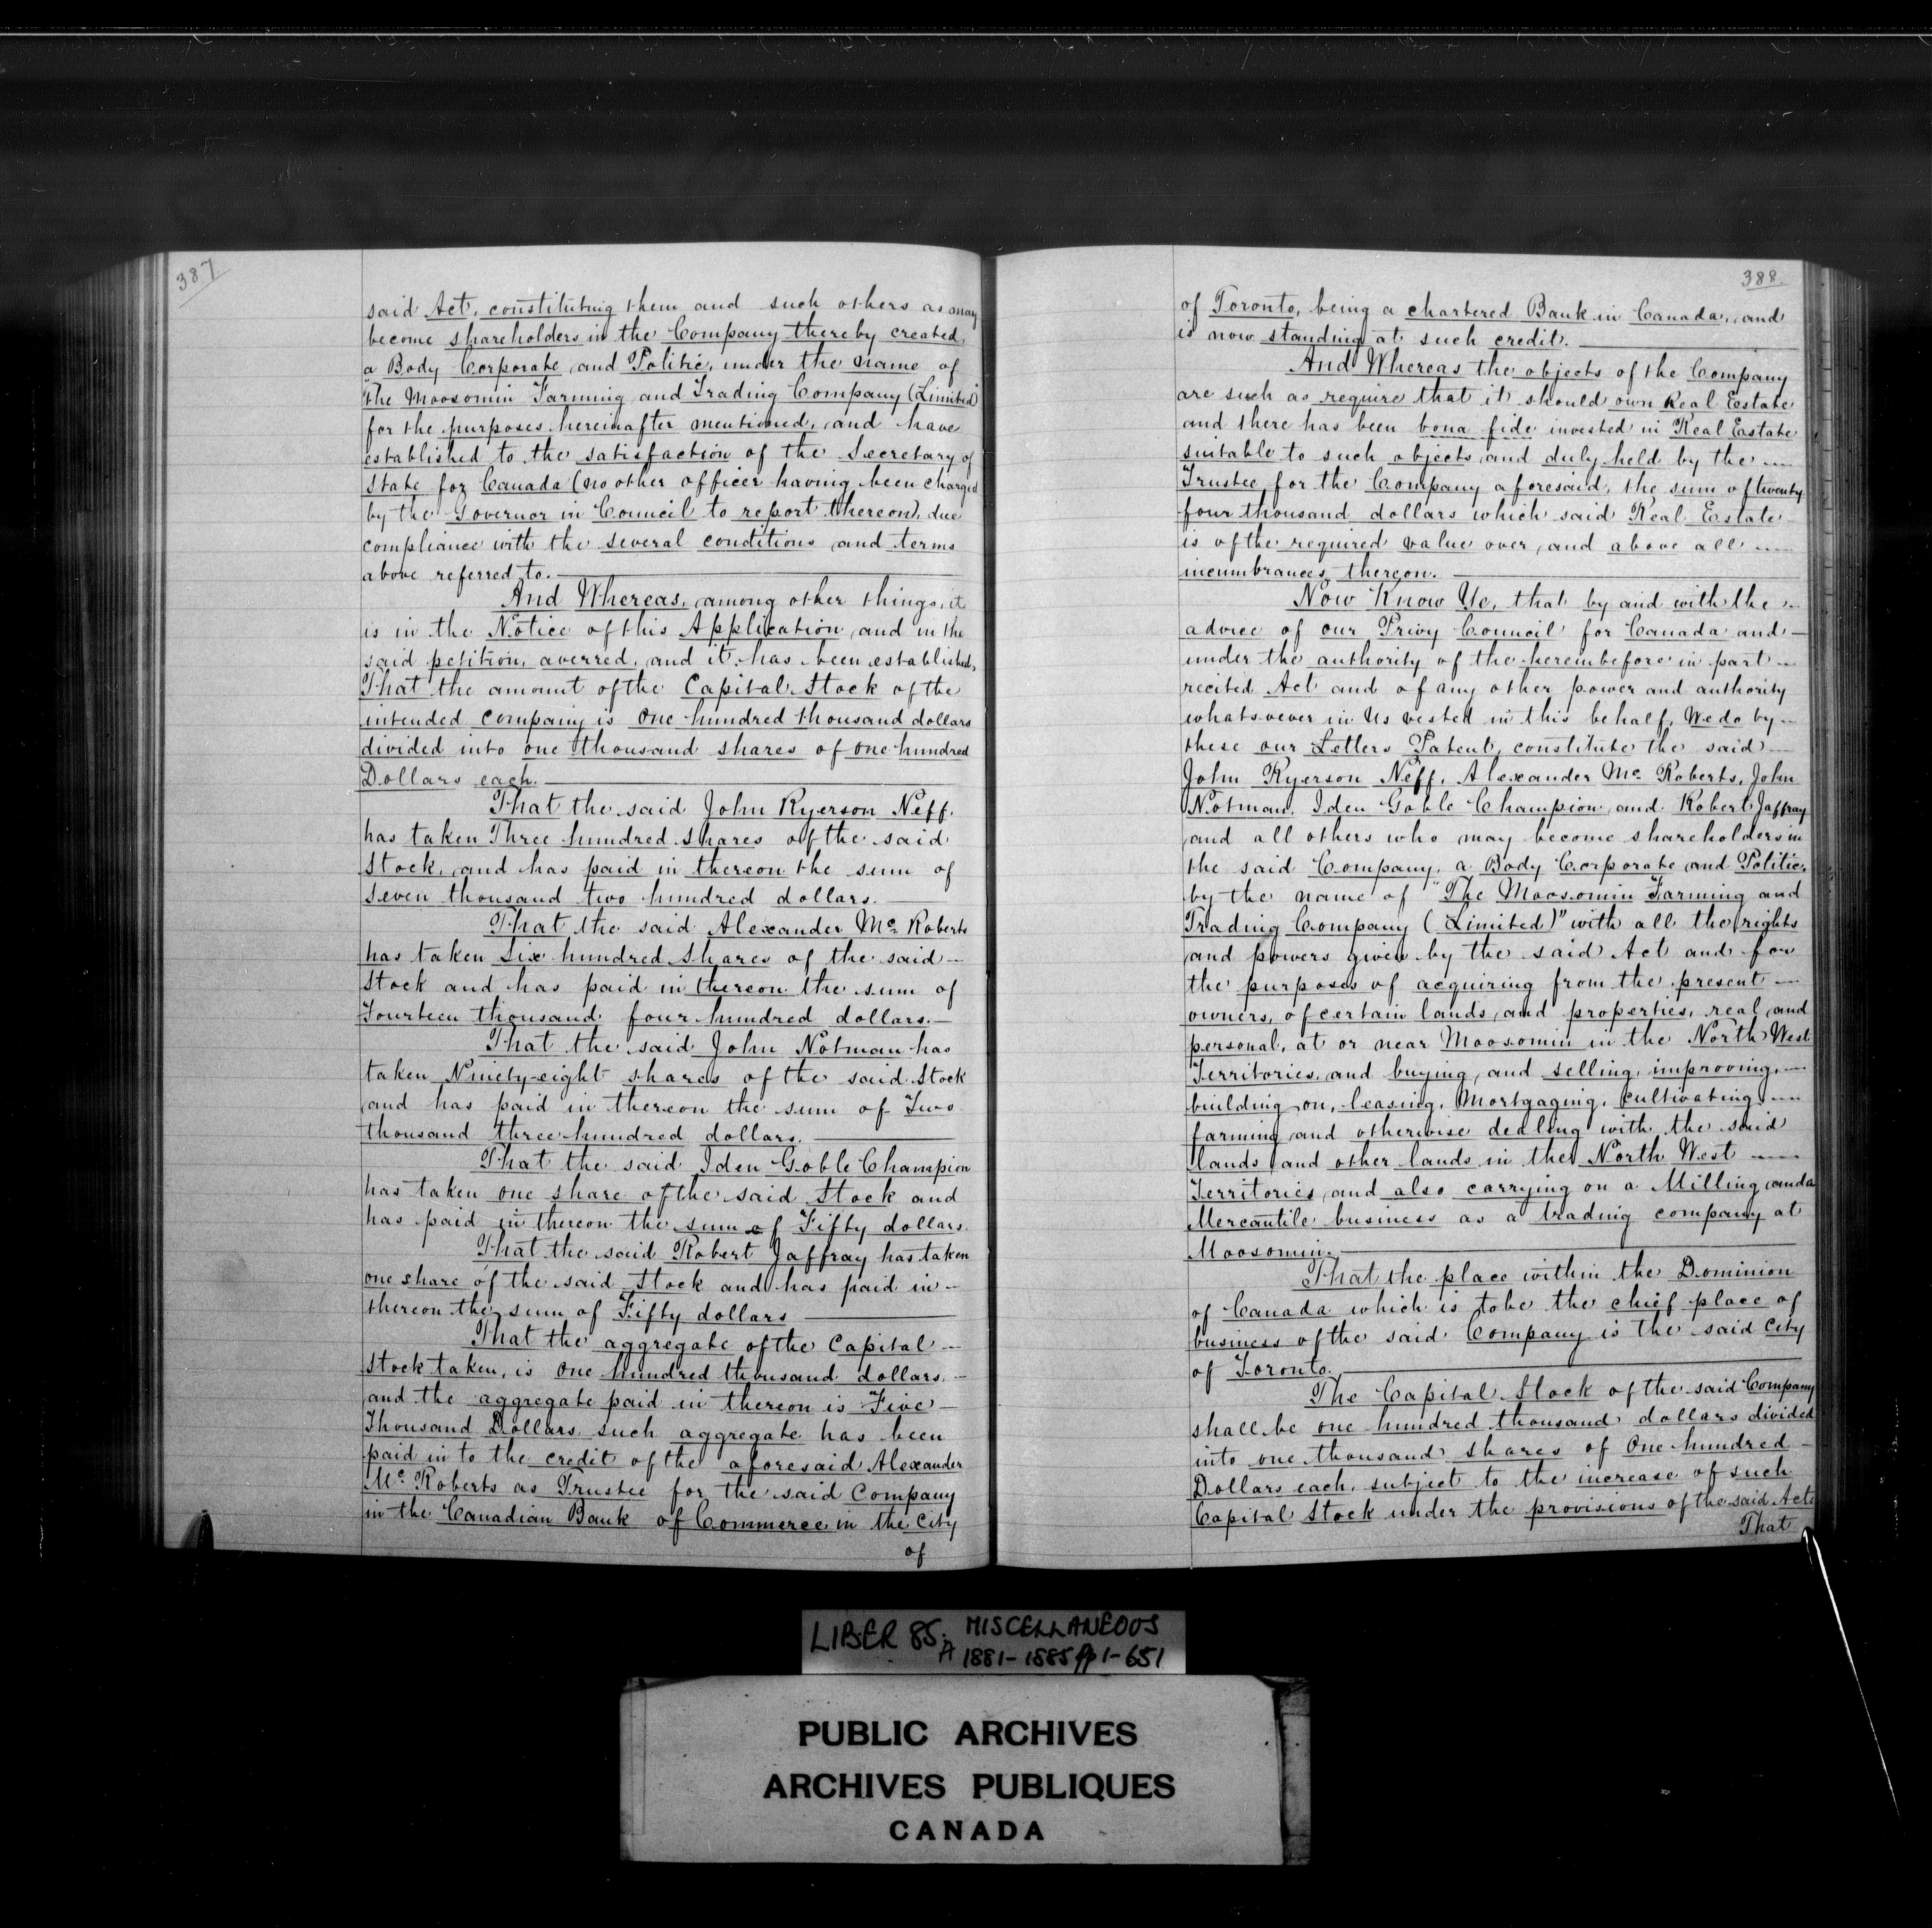 387
said Act, constituting them and such others as may
become shareholders in the Company thereby created,
a Body Corporate and Politic, under the name of
"The Moosomin Farming and Trading Company (Limited)"
for the purposes hereinafter mentioned, and have
established to the satisfaction of the Secretary of
State for Canada (no other officer having been charged
by the Governor in Council to report thereon), due
compliance with the several conditions and terms
above referred to.
And Whereas, among other things, it
is in the Notice of this Application, and in the
said petition, averred, and it has been established,
That the amount of the Capital Stock of the
intended company is One hundred thousand dollars
divided into one thousand shares of one hundred
Dollars each.
That the said John Ryerson Neff.
has taken Three hundred shares of the said
Stock, and has paid in thereon the sum of
Seven thousand two hundred dollars.
That the said Alexander Mc Roberts
has taken Six hundred Shares of the said
Stock and has paid in thereon the sum of
Fourteen thousand four hundred dollars.
That the said John Notman has
taken Ninety-eight shares of the said Stock
and has paid in thereon the sum of Two
thousand three hundred dollars.
That the said Iden Goble Champion
has taken one share of the said Stock and
has paid in thereon the sum of Fifty dollars.
That the said Robert Jaffray has taken
one share of the said Stock and has paid in
thereon the sum of Fifty dollars
That the aggregate of the Capital
Stock taken, is One hundred thousand dollars,
and the aggregate paid in thereon is Five
Thousand Dollars such aggregate has been
paid in to the credit of the aforesaid Alexander
Mc Roberts as Trustee for the said Company
in the Canadian Bank of Commerce in the City
of
388
of Toronto, being a chartered Bank in Canada, and
is now standing at such credit.
And Whereas the objects of the Company
are such as require that it should own Real Eestate
and there has been bona fide invested in Real Eastate
suitable to such objects and duly held by the
Trustee for the Company aforesaid, the sum of twenty
four thousand dollars which said Real Estate
is of the required value over, and above all
incumbrances thereon.
Now Know Ye, that by and with the
advice of our Privy Council for Canada and
under the authority of the hereinbefore in part
recited Act and of any other power and authority
whatsoever in Us vested in this behalf, We do by
these our Letters Patent, constitute the said
John Ryerson Neff, Alexander Mc Roberts, John
Notman, Iden Goble Champion, and Robert Jaffray
and all others who may become shareholders in
the said Company, a Body Corporate and Politic,
by the name of "The Moosomin Farming and
Trading Company (Limited)" with all the rights
and powers given by the said Act and for
the purposes of acquiring from the present
owners, of certain lands, and properties, real and
personal, at or near Moosomin in the North West
Territories, and buying, and selling, improving,
building on, leasing, Mortgaging, cultivating,
farming and otherwise dealing with the said
lands and other lands in the North West
Territories, and also carrying on a Milling and a
Mercantile business as a trading company at
Moosomin.
That the place within the Dominion
of Canada which is to be the chief place of
business of the said Company is the said City
of Toronto.
The Capital Stock of the said Company
shall be one hundred thousand dollars divided
into one thousand shares of One hundred
Dollars each, subject to the increase of such
Capital Stock under the provisions of the said Act.
That
LIBER 85. MISCELLANEOUS
A 1881-1885 pp 1-651
PUBLIC ARCHIVES
ARCHIVES PUBLIQUES
CANADA